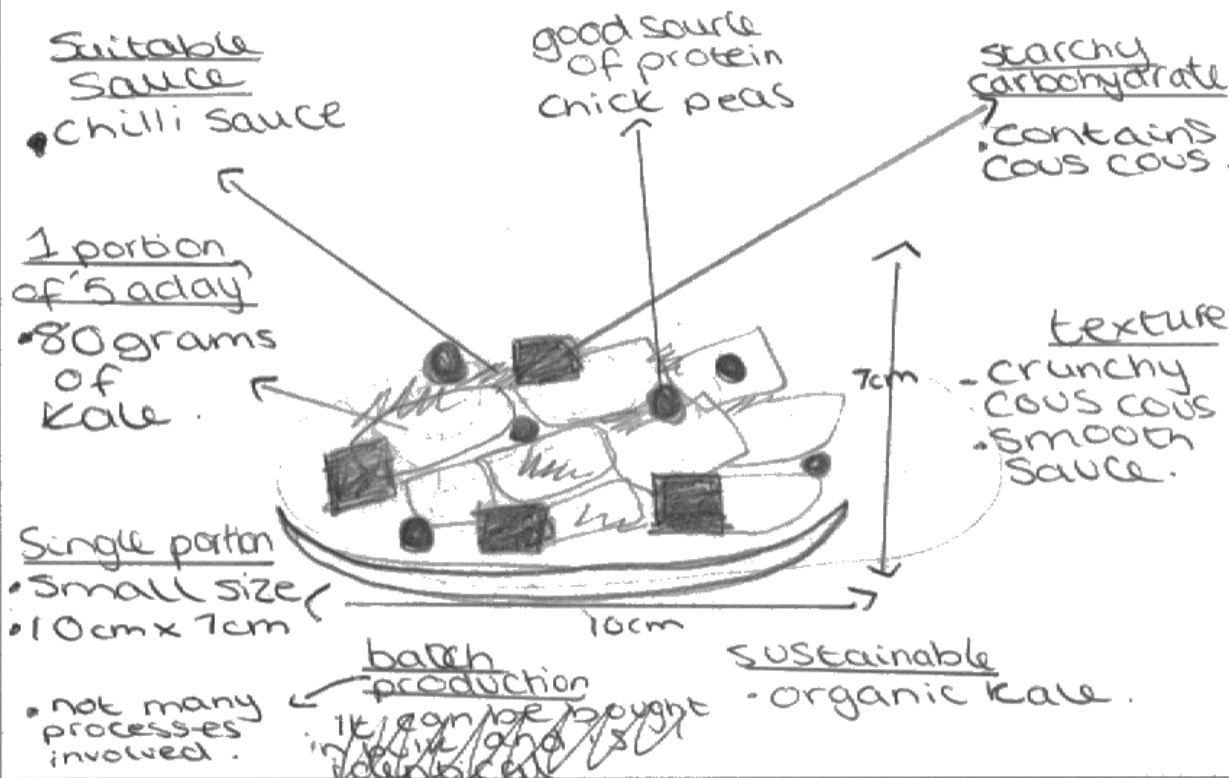 Suitable
Sauce
• Chilli sauce
good source
of protein
Chick peas
starchy
carbohydrate
• contains
cous cous.
1 portion
of '5 a day'
• 80 grams
of
kale.
7cm
texture
- crunchy
cous cous
• smooth
sauce.
Single portion
• Small size
• 10cm x 7cm
10cm
batch
production
It can be bought
in bulk and is
identical
• not many
processes
involved.
sustainable
• organic kale.